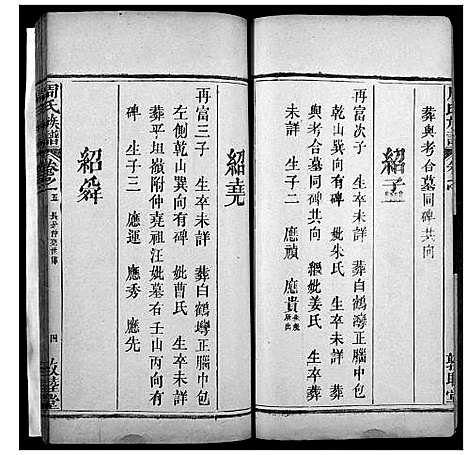 葬與考合墓同碑共向
紹
再富次子 生卒未詳 葬白鶴灣正腦中包
乾山巽向有碑 妣朱氏 生卒未詳 葬
與考合墓同碑共向 繼妣姜氏 生卒葬
未詳 生子二 應禎 應貴
紹堯
再富三子 生卒未詳 葬白鶴灣正腦中包
左側乾山巽向有碑 妣曹氏 生卒未詳
葬平坦嶺附仲堯祖汪妣墓右壬山丙向有
碑 生子三 應運 應秀 應先
紹舜
周氏族譜 卷之 五
四
敦睦堂